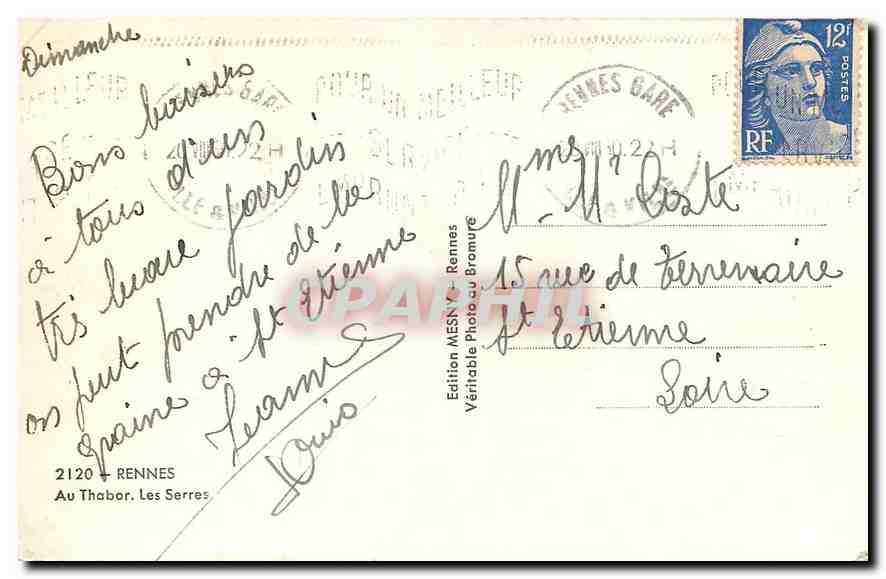 Dimanche
Bons baisers
à tous d'un
très beau jardin
on peut prendre de la
graine à St Etienne
Jeanne
Louis
2120 - RENNES
Au Thabor. Les Serres
Edition MESNY - Rennes
Véritable Photo au Bromure
CPAPHIL
RENNES GARE
22H
POUR
UN MEILLEUR
12F
POSTES
RF
Mme Mr
15 rue de Terrenoire
St Etienne
Loire